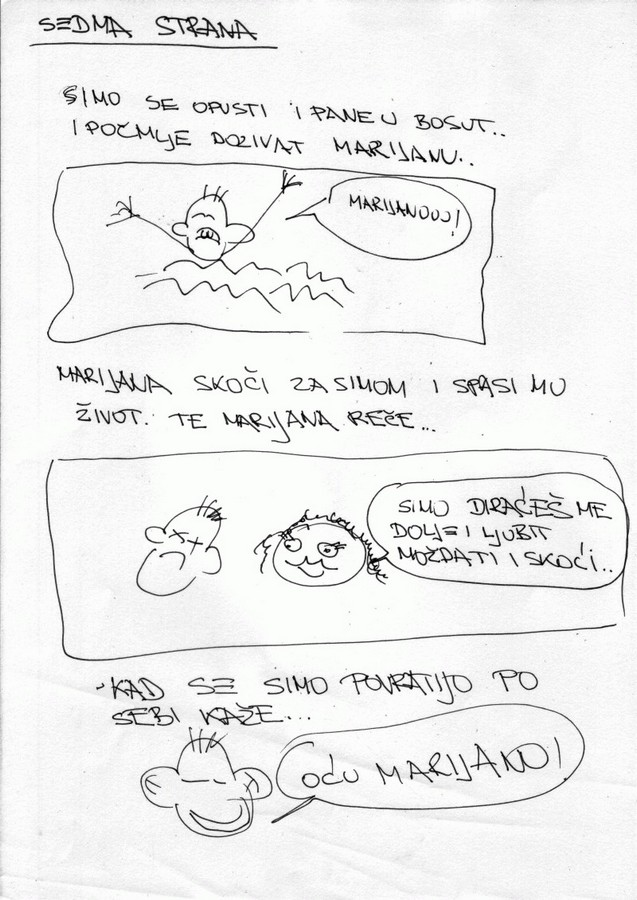 SEDMA STRANA
SIMO SE OPUSTI I PANE U BOSUT..
I POČMIJE DOZIVAT MARIJANU..
MARIJANOOO!
MARIJANA SKOČI ZA SIMOM I SPASI MU
ŽIVOT. TE MARIJANA REČE...
SIMO DIRAĆEŠ ME
DOLJE I LJUBIT
MOŽDA TI I SKOĆI..
-KAD SE SIMO POVRATIJO PO
SEBI KAŽE...
OĆU MARIJANO!